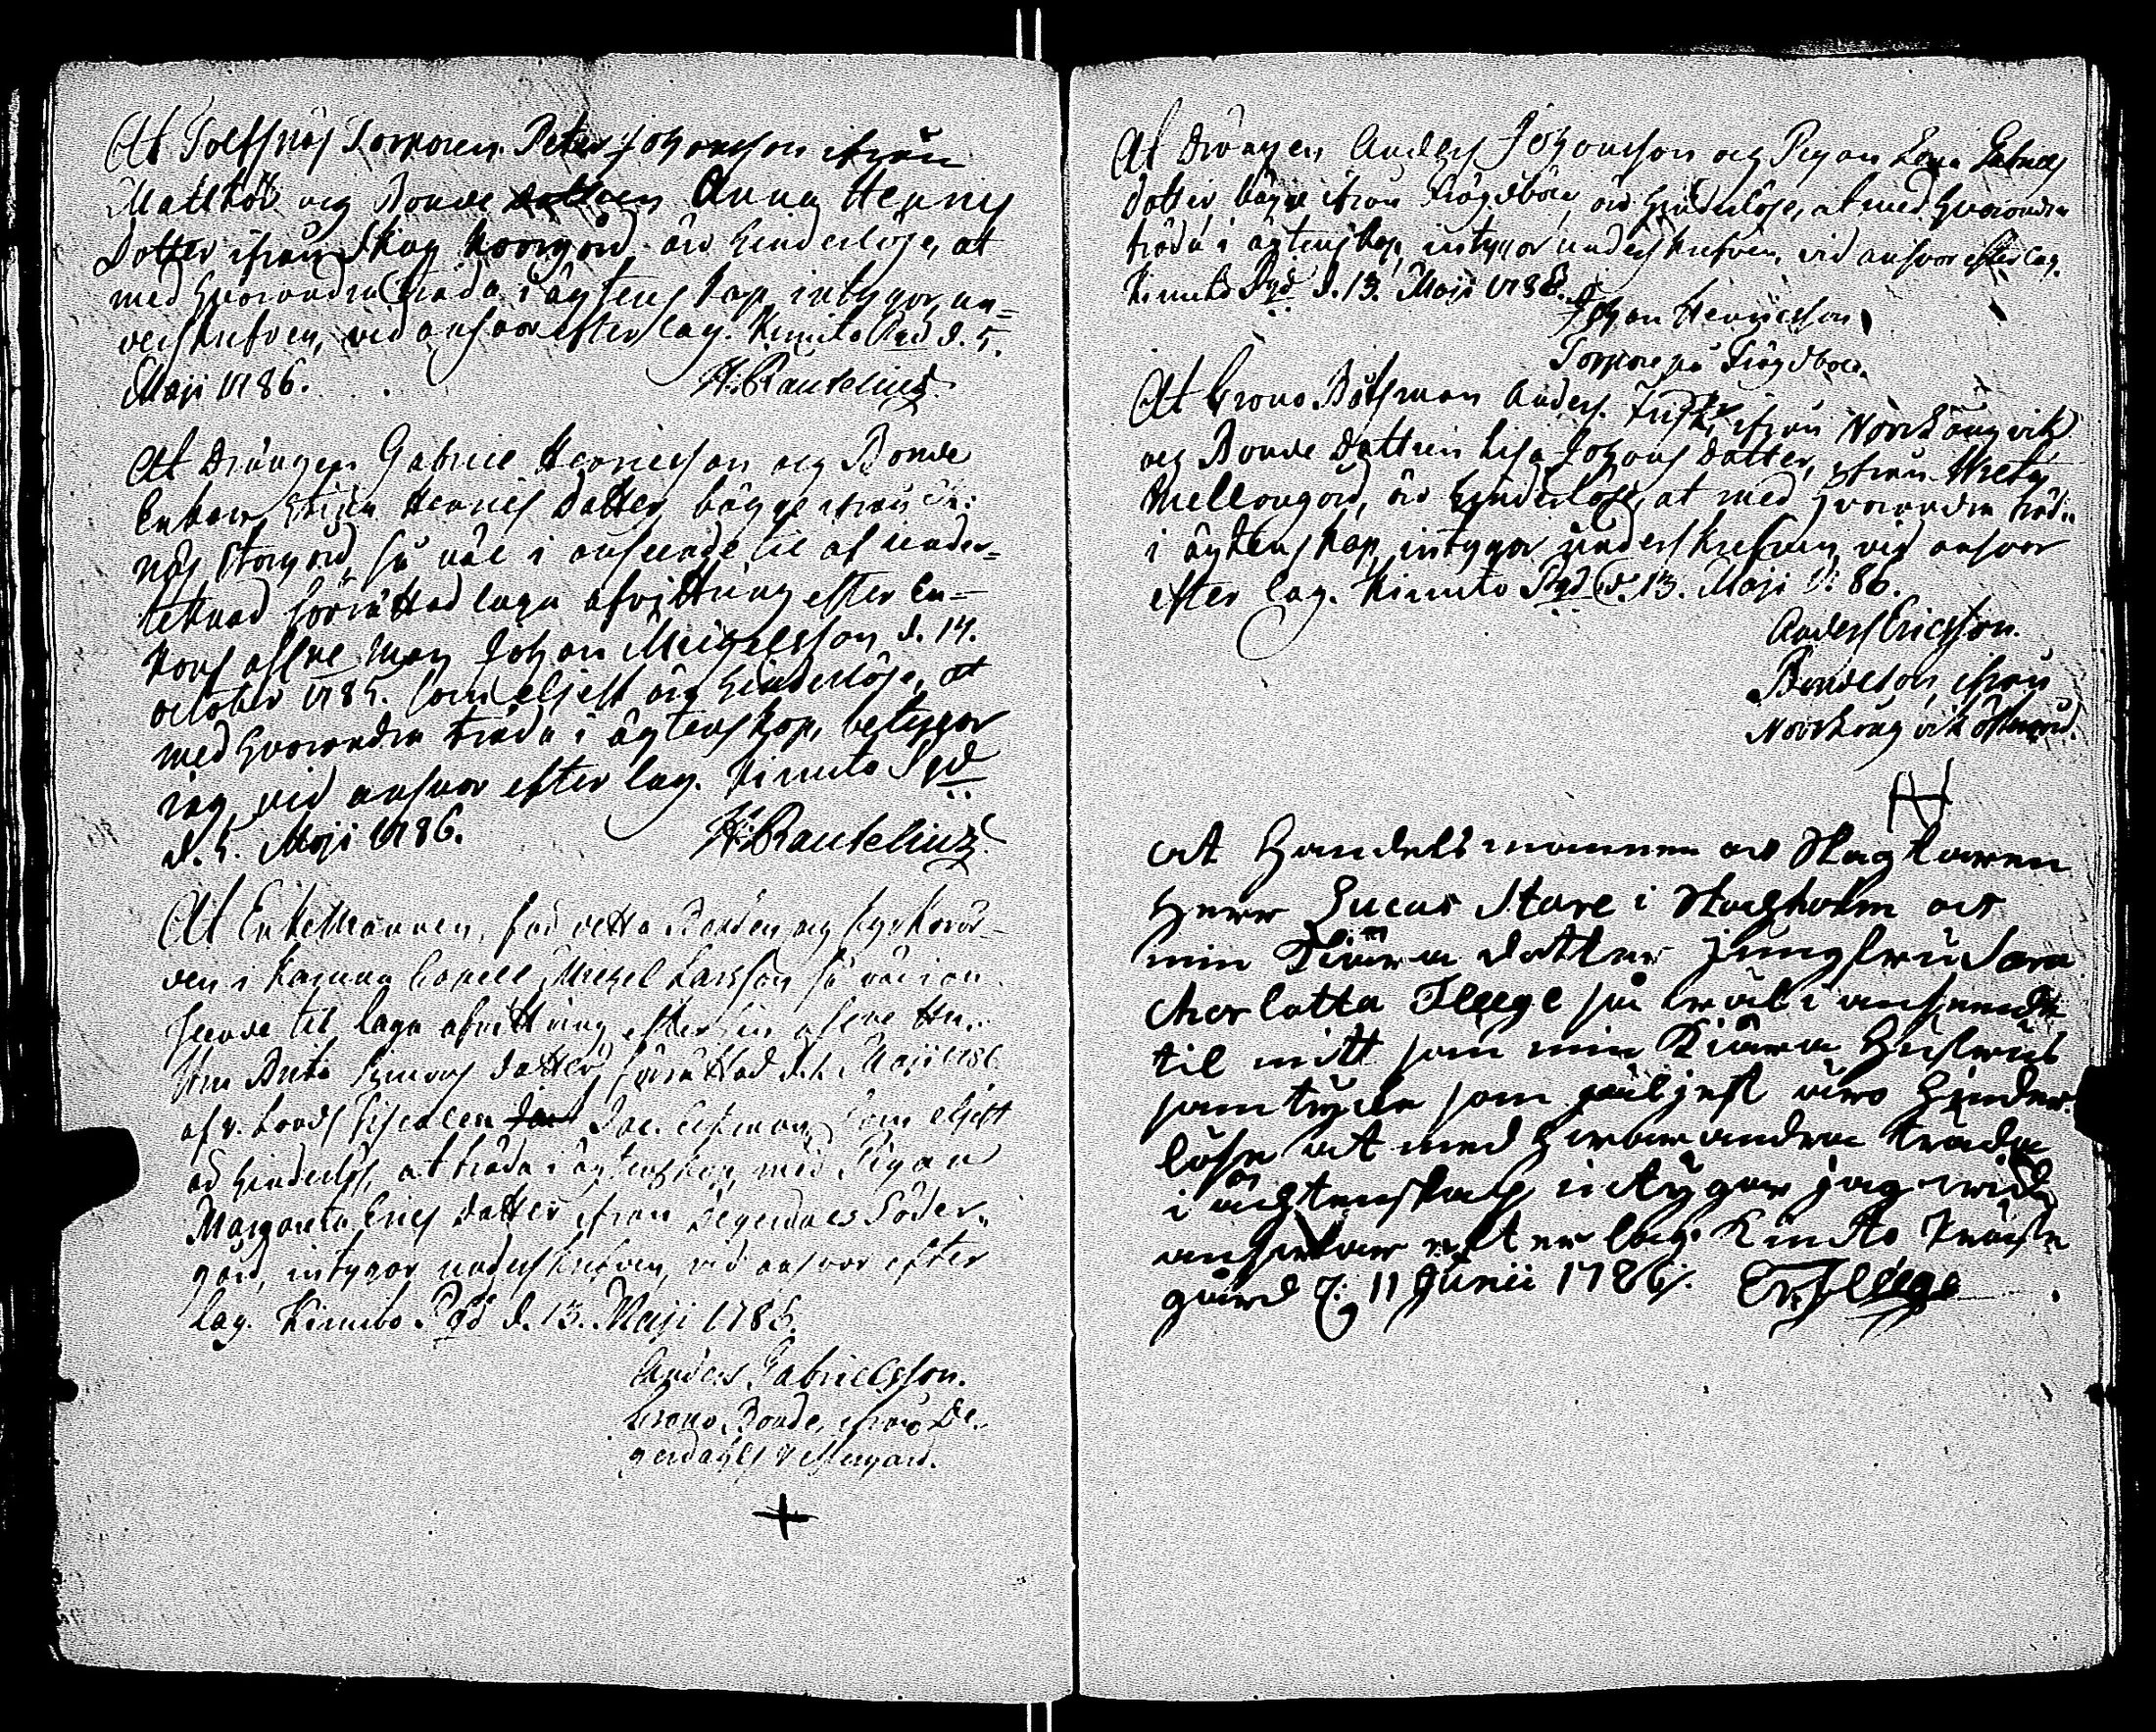 At Tolfsnäs Torparen Peter Johansson ifrån
Mattkär og Bonde dottren Anna Henrics
Dotter ifrån Skog Norrgård, äro hinderlöse, at
med hvarandra träda i ägtenskap, intygar, un=
derskrefven, vid ansvar efter lag. Kimito Pgd d. 5.
Maji 1786.
H: Rautelius
At Drängen Gabriel Henricsson og Bonde
Enkan Stina Henrics dotter, bägge ifrån
näs Storgård, så väl i anseende til af under=
teknad förrättad laga afvittring efter En=
kans aflne Man Johan Michelsson d. 14.
october 1785. som eljest äro hinderlöse, at
med hvarandra träda i ägtenskap, betygar
jag vid ansvar efter lag. Kimito Pgd
d. 5. Maji 1786.
H: Rautelius
At Enkemannen, för detta Bonden og kyrkovär-
den i Capell Michel Larsson så väl i an
seende til laga afvittring efter sin aflne Hu
stru Brita Simons dotter, förrättad d. 1. Maji 1786
af v. Lands Fiscalen Jac. som eljest
är hinderlös, at träda i ägtenskap, med Pigan
Margareta Erics dotter ifrån Degerdals Söder-
gård, intygar underskrefven, vid ansvar efter
lag. Kimito Pgd d. 13. Maji 1786.
Anders Gabrielsson.
Crono Bonde, ifrån De-
gerdahls Vestergård.
At Drängen Anders Johansson og Pigan Lena Gabriels
dotter, bägge ifrån Trögdböle, äro hinderlöse, at med hvarandra
träda i ägtenskap, intygar underskrefven, vid ansvar efter lag.
Kimito Pgd d. 13. Maji 1786.
Johan Henricsson
Torpare på Trögdböle.
At Crono Båtsman Anders Frisk, ifrån Norrlångvik
og Bonde dottren Lisa Johans dotter, ifrån
Mellangård, äro hinderlöse, at med hvarandra träda
i ägtenskap, intygar underskrefven, vid ansvar
efter lag. Kimito Pgd d. 13. Maji 1786.
Anders Ericsson.
Bondeson, ifrån
Norrlångvik Östergård.
at Handelsmannen os
Herr Lucas Stare i Stockholm och
min Kiära dotter jungfru Sara
charlotta Fleege så wäl i anseende
til mitt som min Kiära Hustrus
samtycke som äljest äro Hinder
löse at med hwarandra träda
i ächtenskap intygar jag wid
answar efter lag. Kimito Präste
gård d. 11 Junii 1786. Er. Fleege